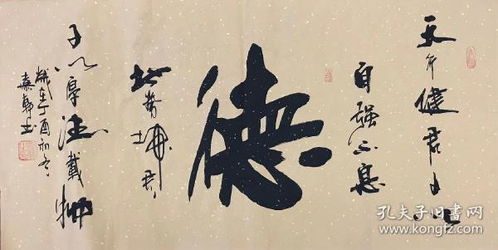 天行健君子以
自强不息
德
地势坤君
子以厚德載物
歲在丁酉初冬
孔夫子旧书网
www.kongfz.com